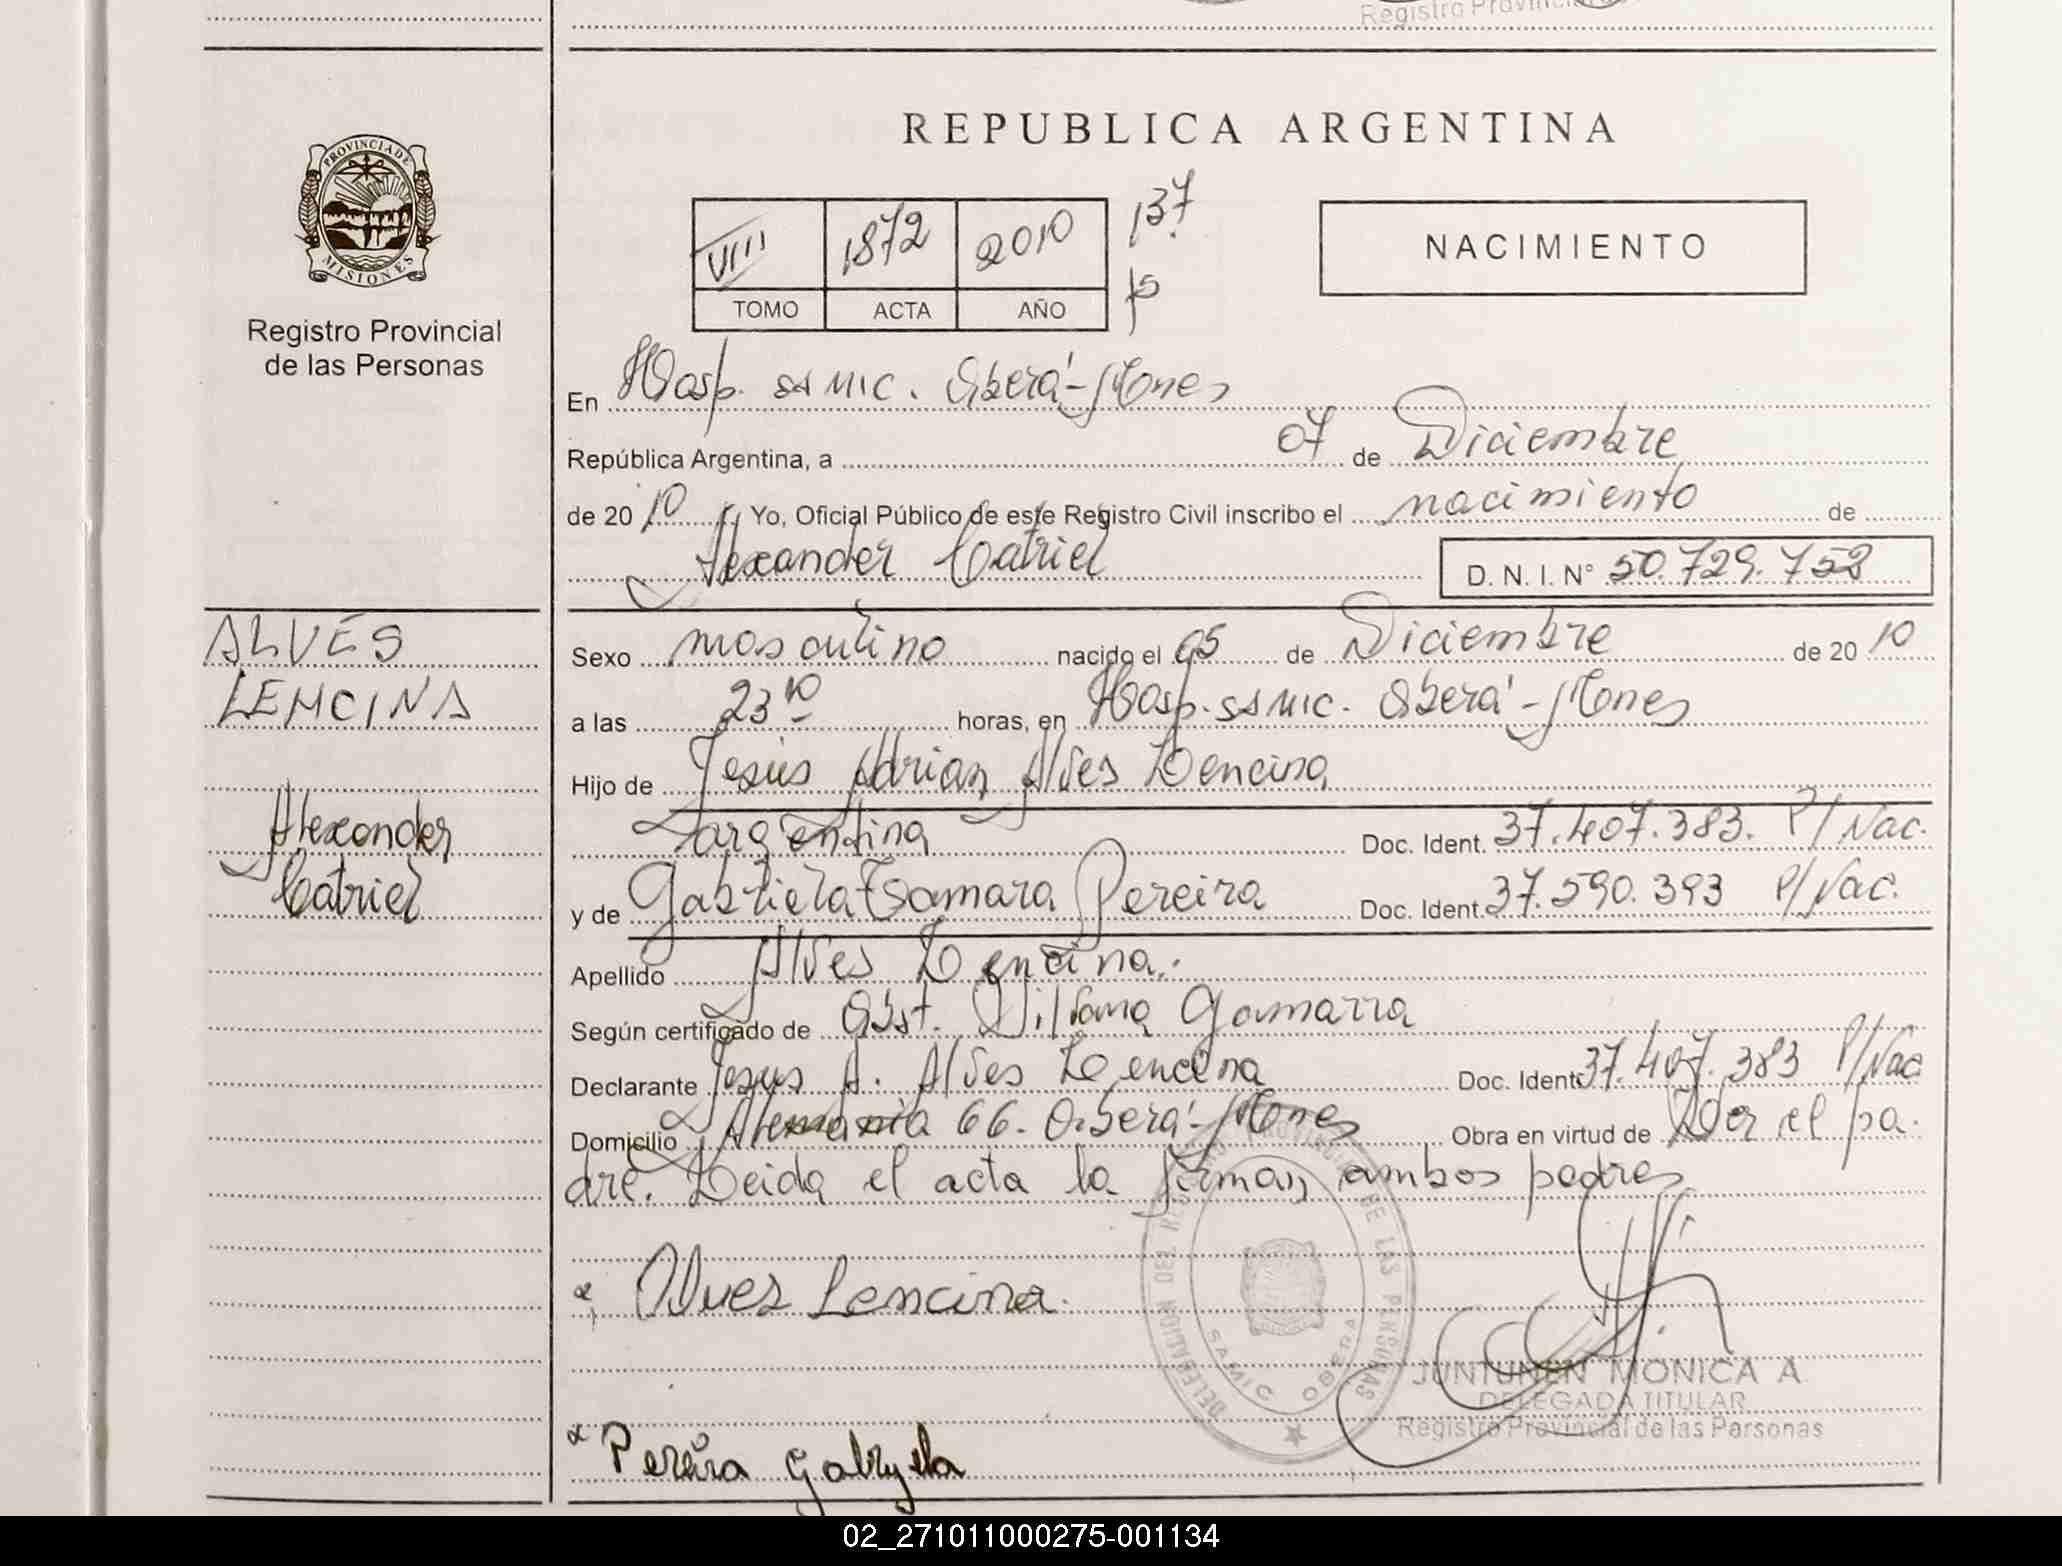 Registro Provincial de
REPUBLICA ARGENTINA
PROVINCIA DE
MISIONES
Registro Provincial
de las Personas
VIII 1872 2010 137
TOMO ACTA AÑO
NACIMIENTO
En Hosp. SAMIC. Oberá-Mones
República Argentina, a 07 de Diciembre
de 2010 Yo, Oficial Público de este Registro Civil inscribo el nacimiento de
Alexander Catriel D. N. I. N° 50.729.752
ALVES
LENCINA
Alexander
Catriel
Sexo masculino nacido el 05 de Diciembre de 2010
a las 23 10 horas, en Hosp. SAMIC. Oberá-Mones
Hijo de Jesús Adrian Alves Lencina
Argentina Doc. Ident. 37.407.383. P/Nac.
y de Gabriela Tamara Pereira Doc. Ident. 37.590.393 P/Nac.
Apellido Alves Lencina.
Según certificado de Obst. Liliana Gamarra
Declarante Jesus A. Alves Lencina Doc. Ident 37.407.383 P/Nac
Domicilio Alemania 66. Oberá-Mones Obra en virtud de Ser el pa.
dre. Leida el acta la firman ambos padres
x Alves Lencina.
DELEGACION DEL REGISTRO PROVINCIAL DE LAS PERSONAS
SAMIC OBERA
JUNTUNEN MONICA A.
DELEGADA TITULAR
Registro Provincial de las Personas
x Pereira Gabryela
02_271011000275-001134